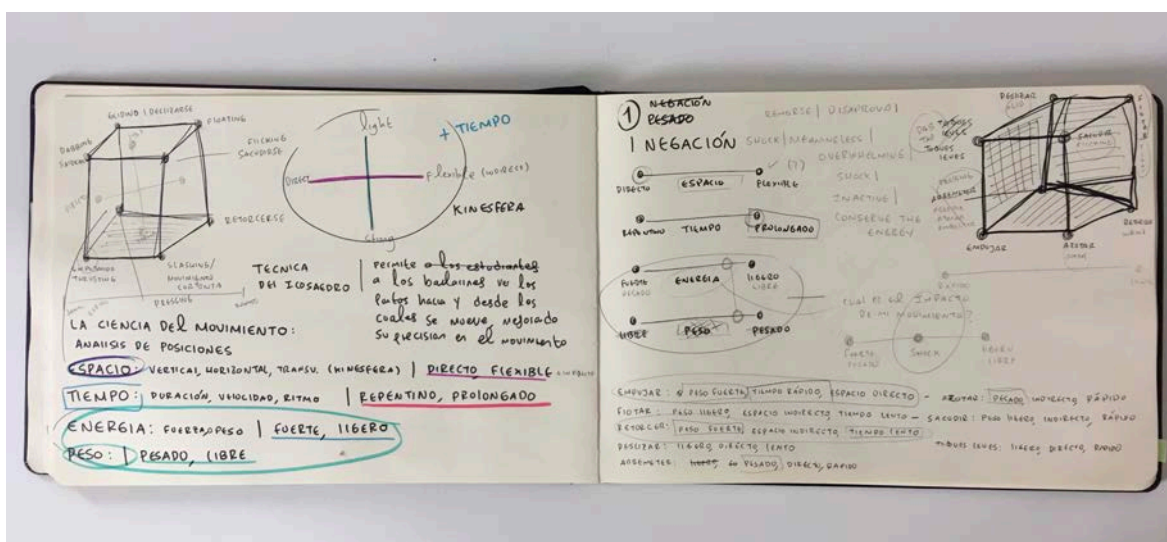 GLIDING | DESLIZARSE
FLOATING
DABBING
FLICKING
SACUDIRSE
RETORCERSE
THRUSTING
SLASHING/
MOVIMIENTO
CORTANTE
PRESSING
light
+ TIEMPO
DIRECT
flexible (INDIRECT)
KINESFERA
strong
TECNICA
DEL ICOSAEDRO
Permite a los estudiantes
a los bailarines ver los
puntos hacia y desde los
cuales se mueve, mejorando
su precision en el movimiento
LA CIENCIA DEL MOVIMIENTO:
ANALISIS DE POSICIONES
ESPACIO: VERTICAL, HORIZONTAL, TRANSV. (KINESFERA) | DIRECTO, FLEXIBLE
TIEMPO: DURACIÓN, VELOCIDAD, RITMO | REPENTINO, PROLONGADO
ENERGIA: FUERZA, PESO | FUERTE, LIGERO
PESO: | PESADO, LIBRE
1 NEGACIÓN
PESADO
REMORSE | DISAPROVO |
| NEGACIÓN SHOCK | MEANINGLESS |
(?) OVERWHELMING |
SHOCK |
INACTIVE |
CONSERVE THE
ENERGY
DIRECTO ESPACIO FLEXIBLE
REPENTINO TIEMPO PROLONGADO
FUERTE ENERGIA LIGERO
PESADO LIBRE
LIBRE PESO PESADO
CUAL ES EL IMPACTO
DE MI MOVIMIENTO?
FUERTE SHOCK LIGERO
PESADO LIBRE
RÁPIDO
DESLIZAR
GLIDE
TOQUES
LEVES
SACUDIR
ARREMETER
EMPUJAR
AZOTAR
EMPUJAR: PESO FUERTE, TIEMPO RÁPIDO, ESPACIO DIRECTO - AZOTAR: PESADO, INDIRECTO, RÁPIDO
FLOTAR: PESO LIGERO, ESPACIO INDIRECTO, TIEMPO LENTO - SACUDIR: PESO LIGERO, INDIRECTO, RÁPIDO
RETORCER: PESO FUERTE, ESPACIO INDIRECTO, TIEMPO LENTO
DESLIZAR: LIGERO, DIRECTO, LENTO TOQUES LEVES: LIGERO, DIRECTO, RÁPIDO
ARREMETER: PESADO, DIRECTO, RAPIDO